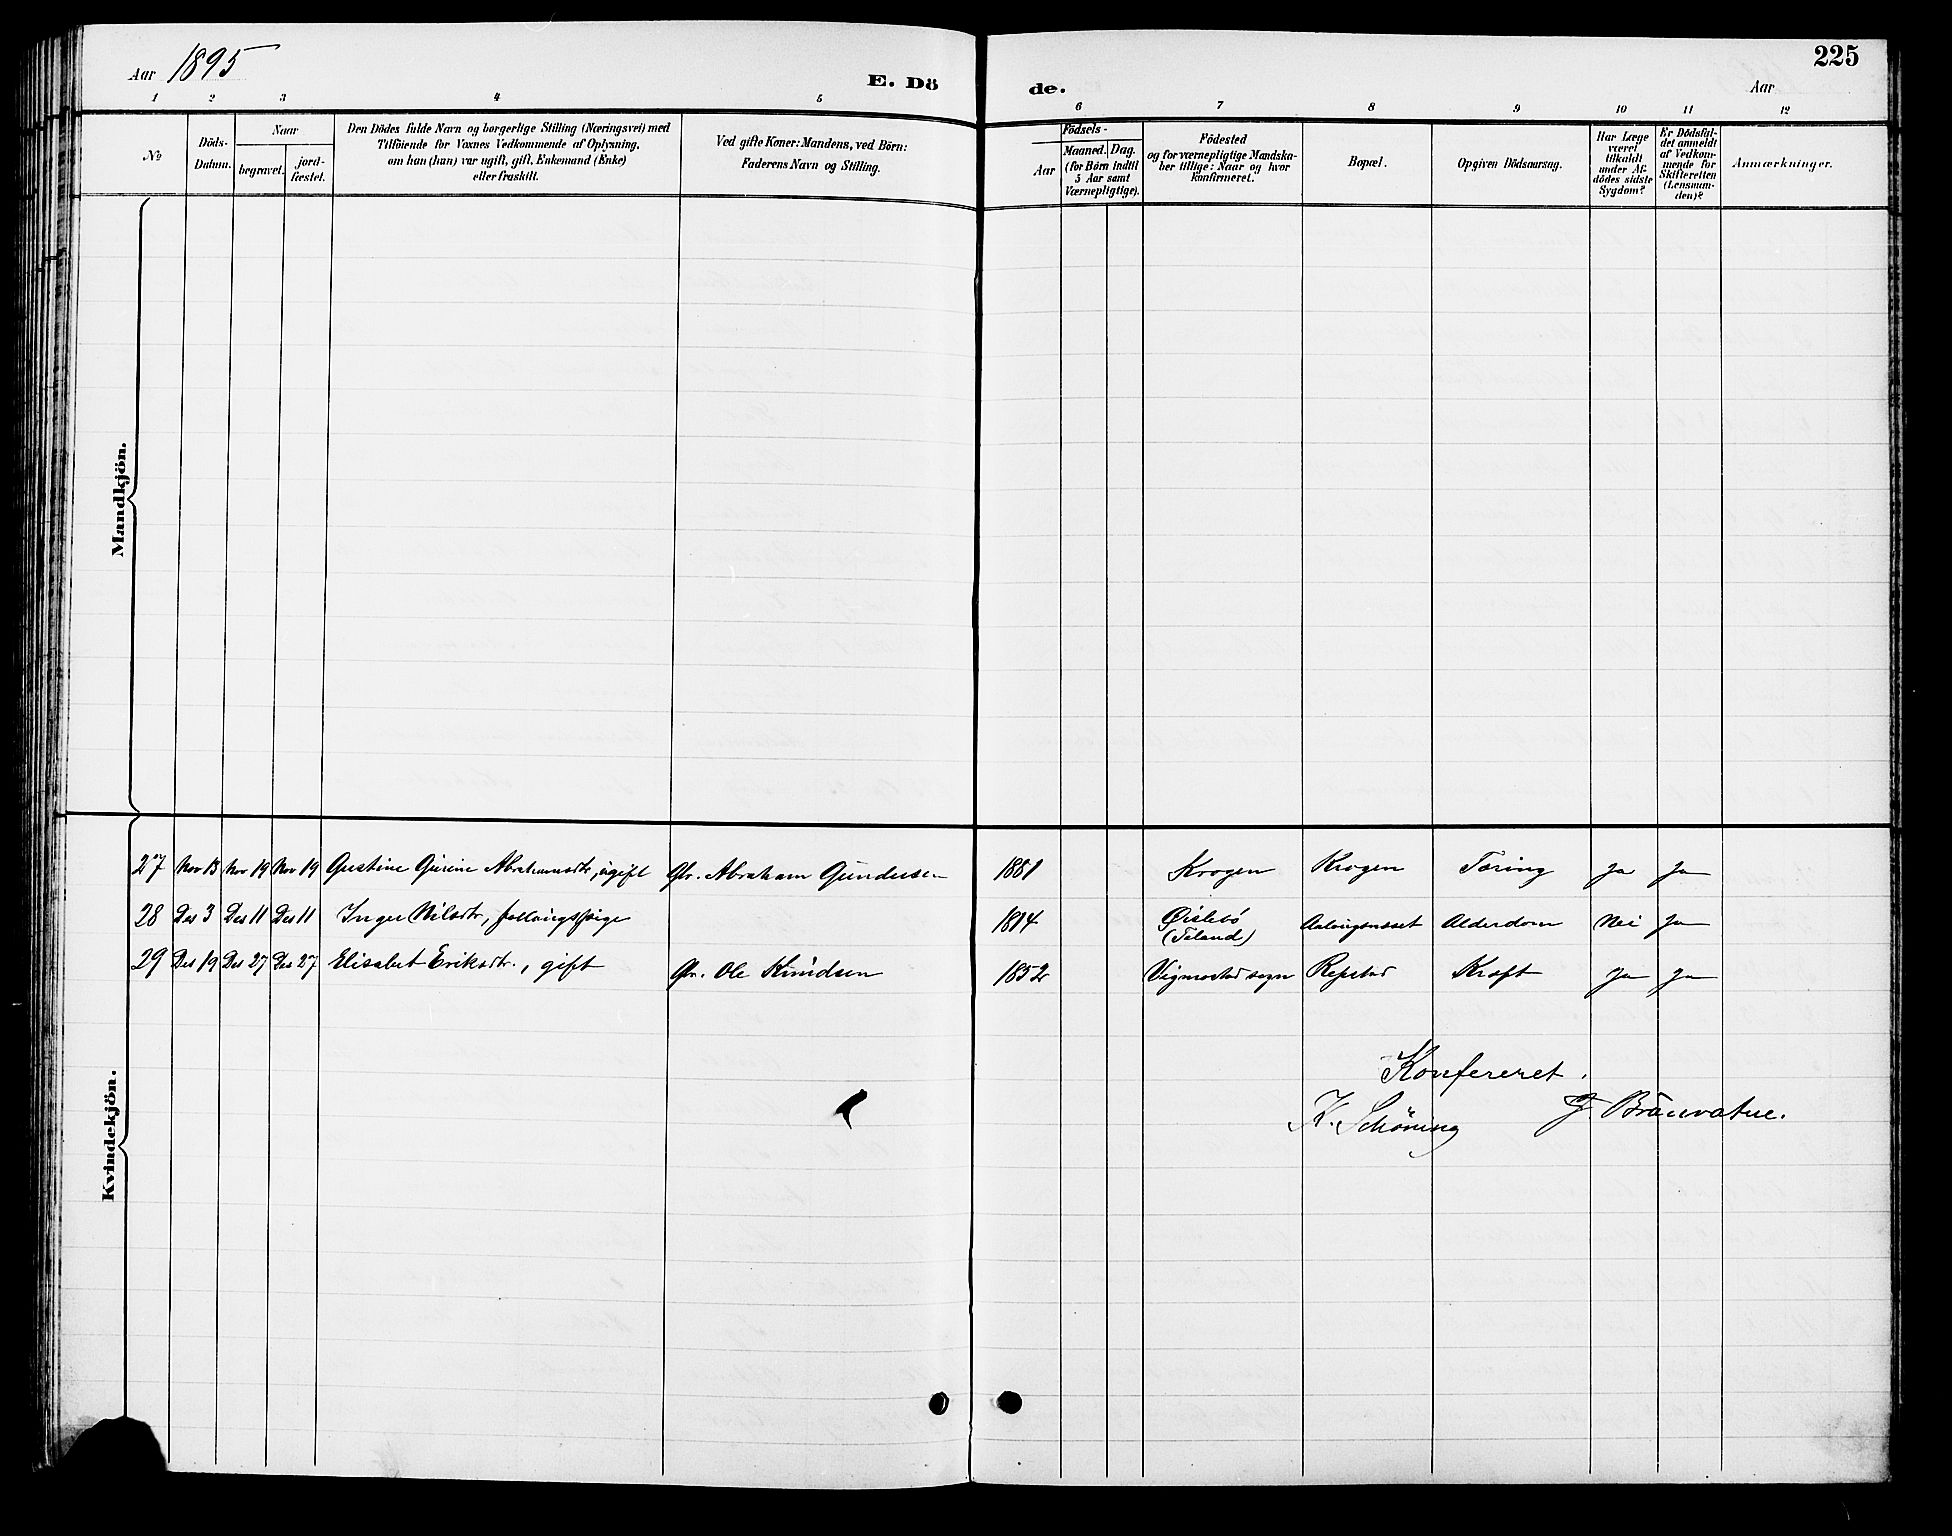 Aar 1895
E. Dö
de.
225
Aar
1 2 3 4 5 6 7 8 9 10 11 12
No
Döds-
Datum.
Naar
begravet.
jord-
festet.
Den Dödes fulde Navn og borgerlige Stilling (Næringsvei) med
Tilföiende for Voxnes Vedkommende af Oplysning,
om han (hun) var ugift, gift, Enkemand (Enke)
eller fraskilt.
Ved gifte Koner: Mandens, ved Börn:
Faderens Navn og Stilling.
Födsels-
Aar
Maaned. Dag.
(for Börn indtil
5 Aar samt
Værnepligtige).
Födested
og for værnepligtige Mandska-
ber tillige: Naar og hvor
konfirmeret.
Bopæl.
Opgiven Dödsaarsag.
Har Læge
været
tilkaldt
under Af-
dödes sidste
Sygdom?
Er Dödsfal-
det anmeldt
af Vedkom-
mende for
Skifteretten
(Lensman-
den)?
Anmærkninger.
Mandkjön.
Kvindekjön.
27 Nov 13 Nov 19 Nov 19 Gustine Gurine Abrahamsdtr, ugift Gbr. Abraham Gundersen 1881 Krogen Krogen Tæring Ja Ja
28 Des 3 Des 11 Des 11 Inger Nilsdtr, 1814 Øislebø Alderdom Nei Ja
29 Des 19 Des 27 Des 27 Elisabet Eriksdtr., gift Gbr. Ole Knudsen 1852 Vigmostad sogn Repstad Kræft Ja Ja
Konfereret.
K. Schöning